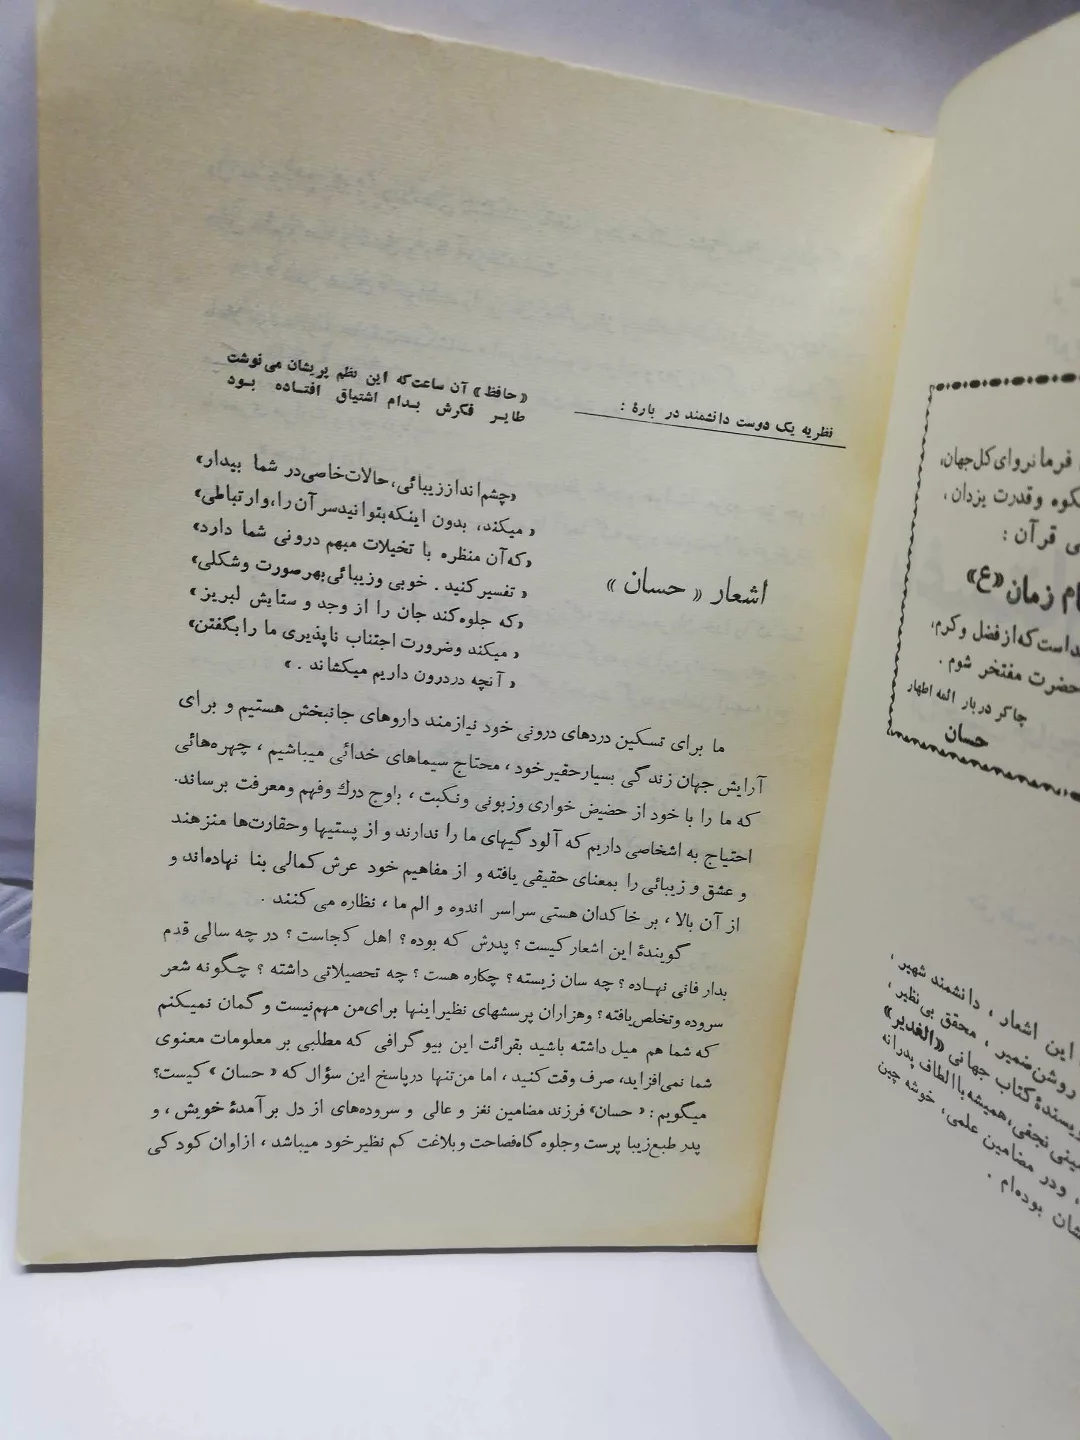 نظریه یک دوست دانشمند در بارهٔ :
«حافظ» آن ساعت‌که این نظم پریشان می‌نوشت
طایر فکرش بدام اشتیاق افتاده بود
اشعار « حسان »
«چشم‌انداززیبائی،حالات‌خاصی‌در شما بیدار»
« میکند، بدون اینکه‌بتوانیدسر آن‌را، وارتباطی»
«که‌آن منظره با تخیلات مبهم درونی شما دارد»
« تفسیرکنید . خوبی وزیبائی‌بهرصورت وشکلی»
«که جلوه‌کند جان را از وجد و ستایش لبریز »
« میکند وضرورت اجتناب ناپذیری ما را بگفتن»
« آنچه دردرون داریم میکشاند . »
ما برای تسکین دردهای درونی خود نیازمند داروهای جانبخش هستیم و برای
آرایش جهان زندگی بسیارحقیرخود ، محتاج سیماهای خدائی میباشیم ، چهره‌هائی
که ما را با خود از حضیض خواری وزبونی ونکبت ، باوج درك وفهم ومعرفت برساند.
احتیاج به اشخاصی داریم که آلودگیهای ما را ندارند و از پستیها وحقارت‌ها منزهند
و عشق و زیبائی را بمعنای حقیقی یافته و از مفاهیم خود عرش کمالی بنا نهاده‌اند و
از آن بالا ، بر خاکدان هستی سراسر اندوه و الم ما ، نظاره می کنند .
گویندهٔ این اشعار کیست؟ پدرش که بوده؟ اهل کجاست؟ در چه سالی قدم
بدار فانی نهاده؟ چه سان زیسته؟ چکاره هست؟ چه تحصیلاتی داشته؟ چگونه شعر
سروده وتخلص‌یافته؟ وهزاران پرسشهای نظیراینها برای‌من مهم‌نیست و گمان نمیکنم
که شما هم میل داشته باشید بقرائت این بیوگرافی که مطلبی بر معلومات معنوی
شما نمی‌افزاید، صرف وقت کنید ، اما من‌تنها درپاسخ این سؤال که « حسان » کیست؟
میگویم : « حسان» فرزند مضامین نغز و عالی و سروده‌های از دل برآمدهٔ خویش ، و
پدر طبع‌زیبا پرست وجلوه گاه‌فصاحت وبلاغت کم نظیرخود میباشد ، ازاوان کودکی
فرمانروای‌کل‌جهان،
وقدرت یزدان ،
قرآن :
زمان«ع»
است که‌ازفضل وکرم،
حضرت مفتخر شوم .
چاکر دربار ائمه اطهار
حسان
این اشعار ، دانشمند شهیر ،
روشن‌ضمیر ، محقق بی‌نظیر ،
کتاب جهانی «الغدیر»
نجفی، همیشه‌باالطاف پدرانه
، ودر مضامین علمی، خوشه چین
بوده‌ام .